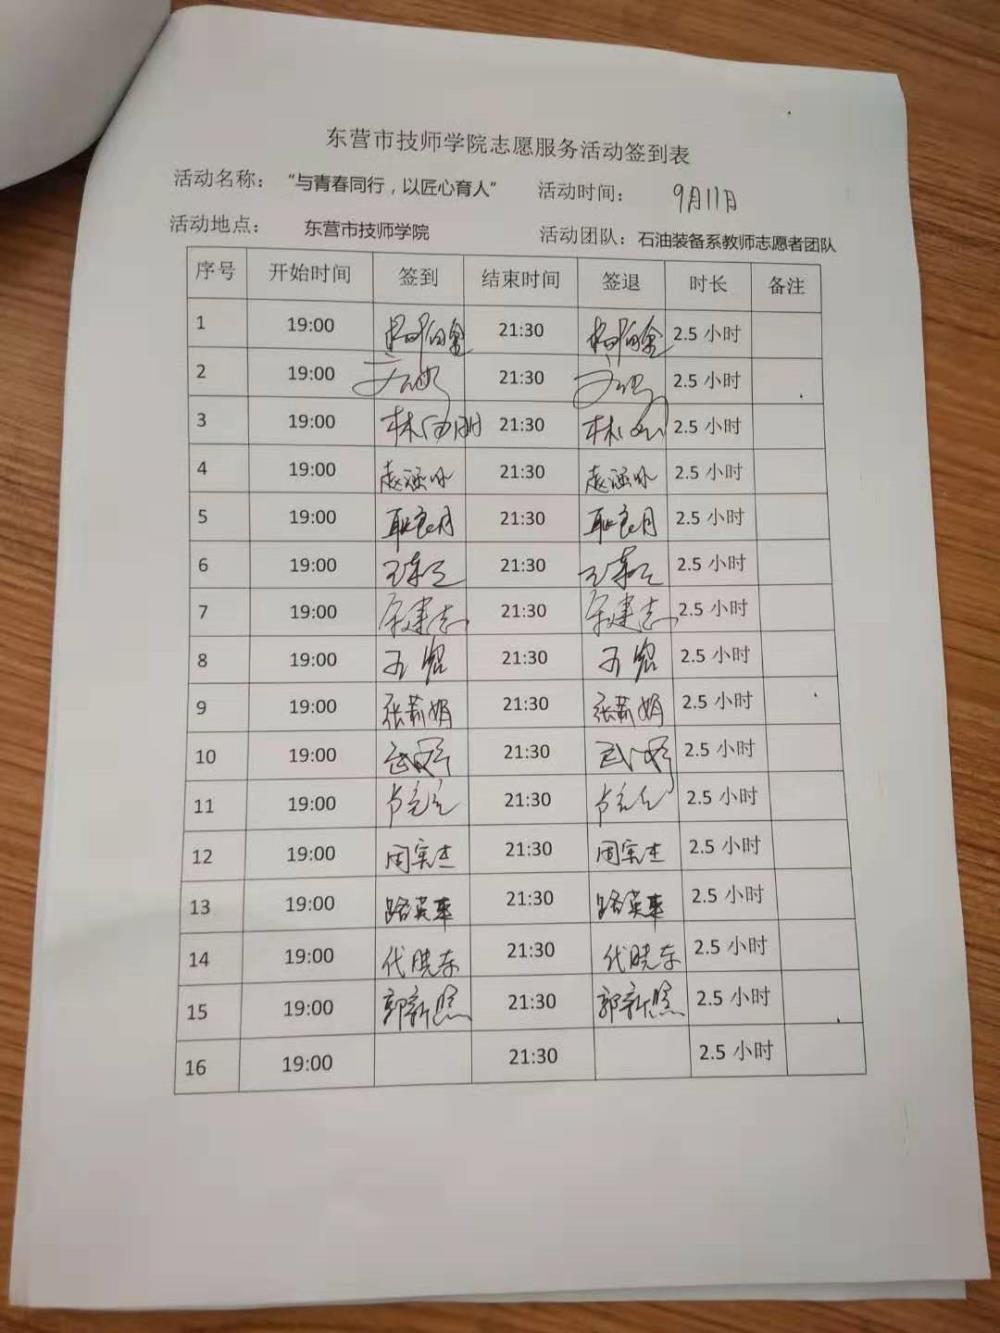 东营市技师学院志愿服务活动签到表
活动名称：“与青春同行，以匠心育人” 活动时间： 9月11日
活动地点： 东营市技师学院 活动团队：石油装备系教师志愿者团队
序号 开始时间 签到 结束时间 签退 时长 备注
1 19:00 21:30 2.5 小时
2 19:00 21:30 2.5 小时
3 19:00 21:30 2.5 小时
4 19:00 21:30 2.5 小时
5 19:00 耿良月 21:30 耿良月 2.5 小时
6 19:00 21:30 2.5 小时
7 19:00 宋建志 21:30 宋建志 2.5 小时
8 19:00 21:30 2.5 小时
9 19:00 张莉娟 21:30 张莉娟 2.5 小时
10 19:00 21:30 2.5 小时
11 19:00 21:30 2.5 小时
12 19:00 周实杰 21:30 周实杰 2.5 小时
13 19:00 路英华 21:30 路英华 2.5 小时
14 19:00 代晓东 21:30 代晓东 2.5 小时
15 19:00 郭新照 21:30 郭新照 2.5 小时
16 19:00 21:30 2.5 小时